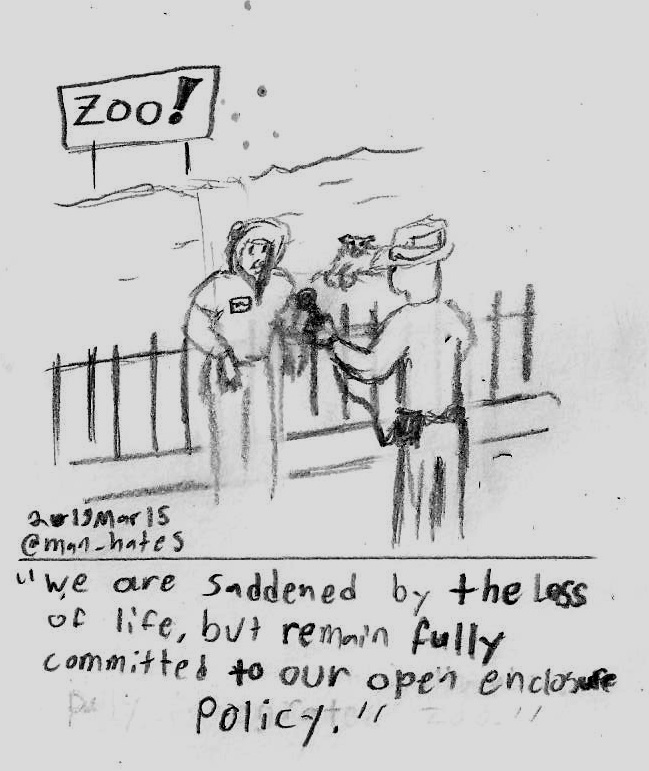 Zoo!
2019Mar15
@man_hates
"We are saddened by the loss
of life, but remain fully
committed to our open enclosure
Policy."